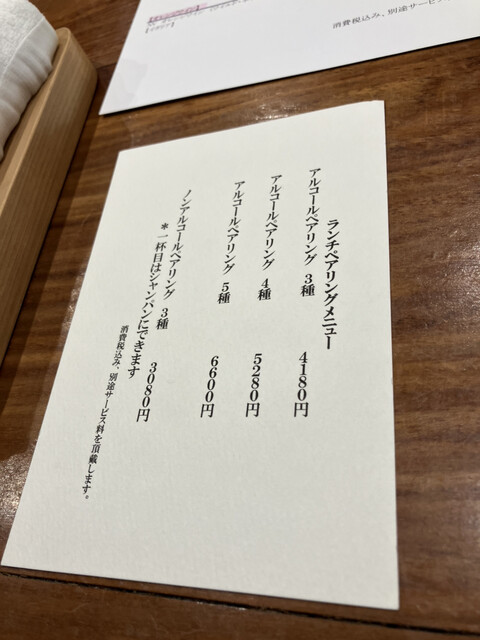 ランチペアリングメニュー
アルコールペアリング 3種 4180円
アルコールペアリング 4種 5280円
アルコールペアリング 5種 6600円
ノンアルコールペアリング 3種 3080円
＊一杯目はシャンパンにできます
消費税込み、別途サービス料を頂戴します。
消費税込み、別途サービス